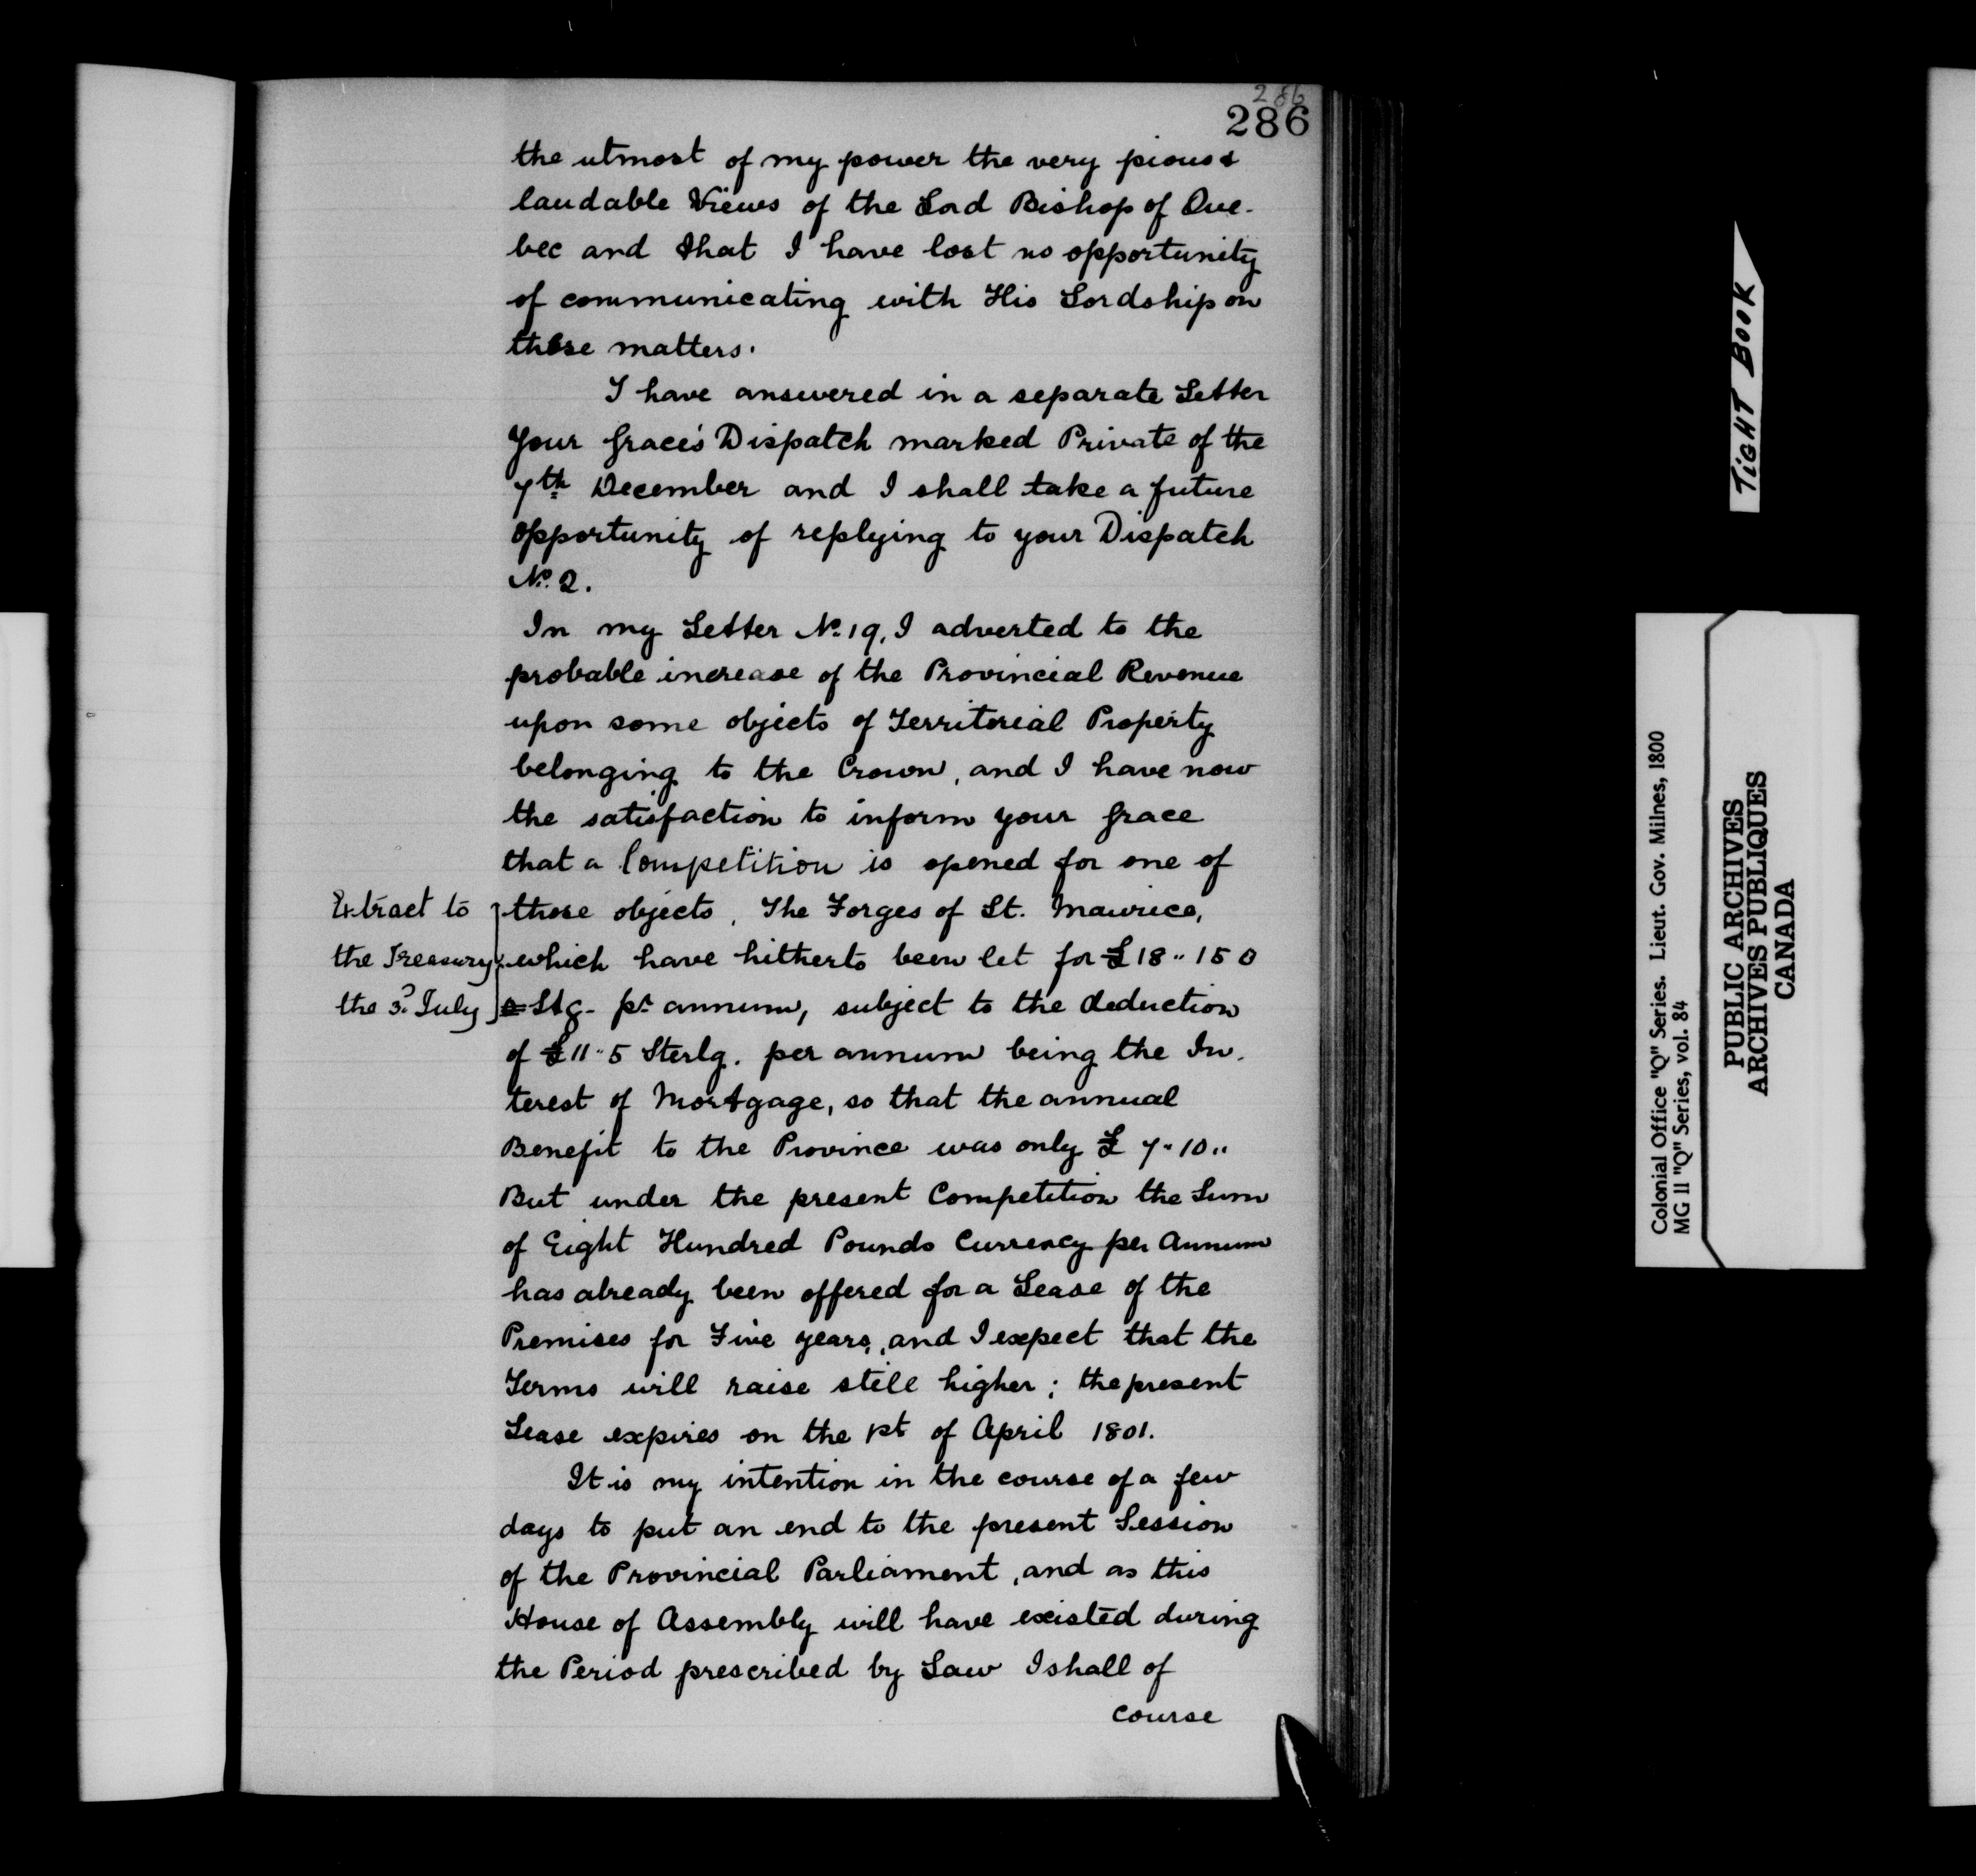 286
286
the utmost of my power the very pious &
laudable Views of the Lord Bishop of Que-
bec and that I have lost no opportunity
of communicating with His Lordship on
these matters.
I have answered in a separate Letter
Your Grace's Dispatch marked Private of the
7th December and I shall take a future
opportunity of replying to your Dispatch
No. 2.
In my Letter No. 19, I adverted to the
probable increase of the Provincial Revenue
upon some objects of Territorial Property
belonging to the Crown, and I have now
the satisfaction to inform your Grace
that a Competition is opened for one of
Extract to
the Treasury
the 3d July
those objects, The Forges of St. Maurice,
which have hitherto been let for £18"15 0
Stg- pr annum, subject to the deduction
of £11"5 Sterlg. per annum being the In-
terest of Mortgage, so that the annual
Benefit to the Province was only £ 7"10"
But under the present Competition the Sum
of Eight Hundred Pounds Currency per Annum
has already been offered for a Lease of the
Premises for Five years, and I expect that the
Terms will raise still higher; the present
Lease expires on the 1st of April 1801.
It is my intention in the course of a few
days to put an end to the present Session
of the Provincial Parliament, and as this
House of Assembly will have existed during
the Period prescribed by Law I shall of
course
TiGHT BOOK
Colonial Office "Q" Series. Lieut. Gov. Milnes, 1800
MG 11 "Q" Series, vol. 84
PUBLIC ARCHIVES
ARCHIVES PUBLIQUES
CANADA